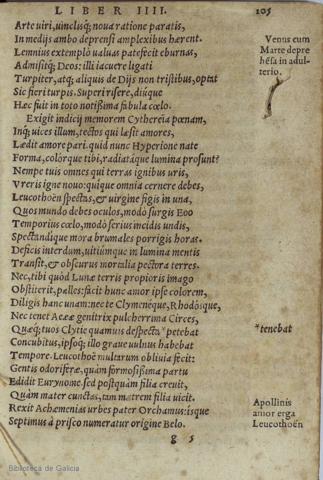 LIBER IIII.
105
Arte uiri, uinclisq́; noua ratione paratis,
In medijs ambo deprensi amplexibus hærent.
Lemnius extemplò ualuas patefecit eburnas,
Admisitq́; Deos: illi iacuere ligati
Turpiter, atq́; aliquis de Dijs non tristibus, optat
Sic fieri turpis. Superi risere, diúque
Hæc fuit in toto notißima fabula cœlo.
Exigit indicij memorem Cythereïa pœnam,
Inq́; uices illum, tectos qui læsit amores,
Lædit amore pari. quid nunc Hyperione nate
Forma, colórque tibi, radiatáque lumina prosunt?
Nempe tuis omnes qui terras ignibus uris,
Vreris igne nouo: quíque omnia cernere debes,
Leucothoën spectas, & uirgine figis in una,
Quos mundo debes oculos, modò surgis Eoo
Temporius cœlo, modò serius incidis undis,
Spectandique mora brumales porrigis horas.
Deficis interdum, uitiúmque in lumina mentis
Transit, & obscurus mortalia pectora terres.
Nec, tibi quòd Lunæ terris propioris imago
Obstiterit, palles: facit hunc amor ipse colorem,
Diligis hanc unam: nec te Clymenéque, Rhodósque,
Nec tenet Aeææ genitrix pulcherrima Circes,
Quæq́; tuos Clytie quamuis despecta * petebat
Concubitus, ipsoq́; illo graue uulnus habebat
Tempore. Leucothoë multarum obliuia fecit:
Gentis odoriferæ, quam formosißima partu
Edidit Eurynome. sed postquàm filia creuit,
Quàm mater cunctas, tam matrem filia uicit.
Rexit Achæmenias urbes pater Orchamus: isque
Septimus à prisco numeratur origine Belo.
g 5
Venus cum
Marte depre
hēsa in adul-
terio.
*tenebat
Apollinis
amor erga
Leucothoën
Biblioteca de Galicia